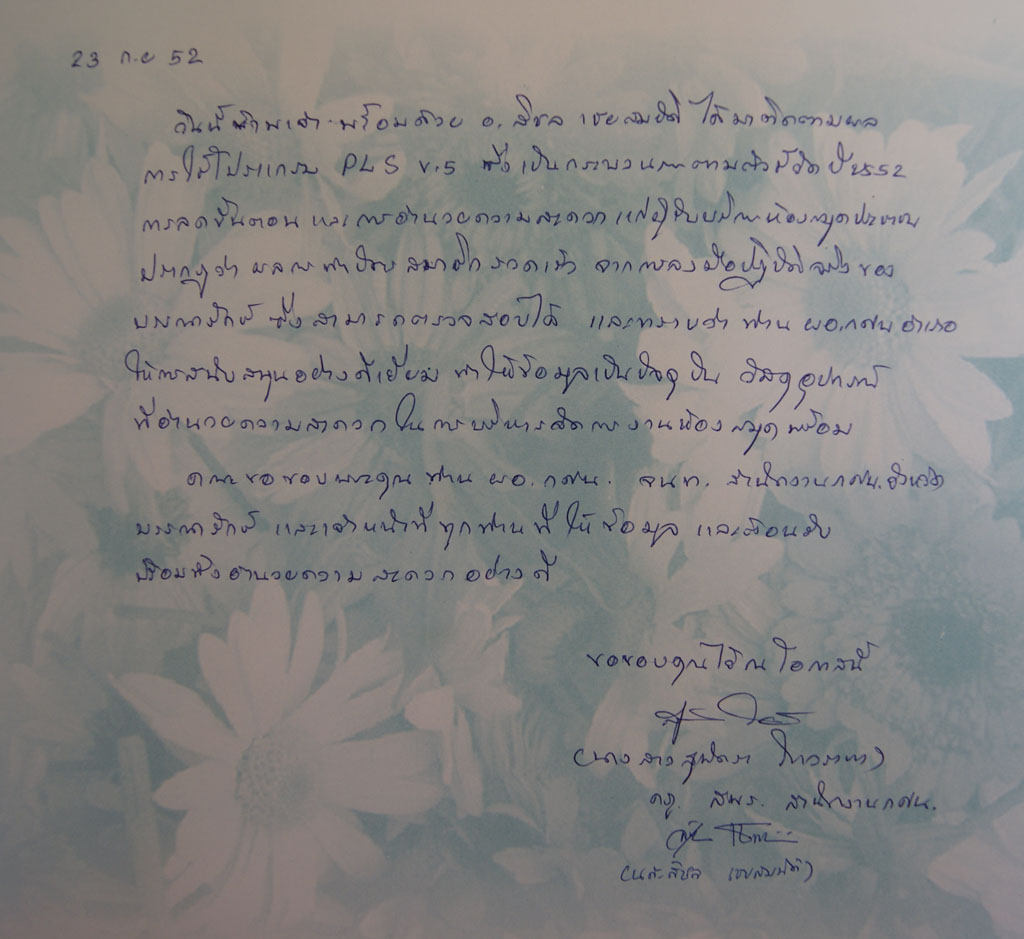 23 ก.ย 52
วันนี้ข้าพเจ้า พร้อมด้วย อ. สีชล เชยสมบัติ ได้มาติดตามผล
การใช้โปรแกรม PLS v.5 ซึ่งเป็นกระบวนการตามตัวชี้วัด ปี 2552
การลดขั้นตอน และการอำนวยความสะดวก แก่ผู้รับบริการห้องสมุดประชาชน
ปรากฏว่า ผลการทำบัตรสมาชิก รวดเร็ว จากการลงมือปฏิบัติจริง ของ
บรรณารักษ์ ซึ่งสามารถตรวจสอบได้ และทราบว่า ท่าน ผอ.กศน.อำเภอ
ให้การสนับสนุนอย่างดีเยี่ยม ทำให้ข้อมูลเป็นปัจจุบัน วัสดุอุปกรณ์
ที่อำนวยความสะดวกในการบริหารจัดการงานห้องสมุด พร้อม
คณะขอขอบพระคุณ ท่าน ผอ. กศน. จนท. สำนักงานกศน.จังหวัด
บรรณารักษ์ และเจ้าหน้าที่ทุกท่านที่ให้ข้อมูล และต้อนรับ
พร้อมทั้งอำนวยความสะดวกอย่างดี
ขอขอบคุณไว้ณโอกาสนี้
(นางสาวสุพัตรา
สำนักงานกศน.
(นส.สีชล เชยสมบัติ)